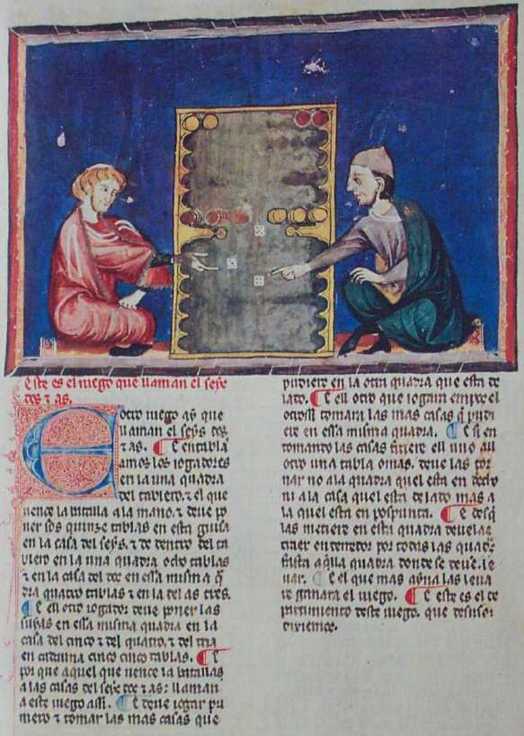 Este es el iuego que llaman el seys
dos & as.
Otro iuego ay que
llaman el seys dos
& as. E en tabla
amos los iogadores
en la una quadra
del tablero. & el que
uence la batalla a la mano. & deue po
ner sos quinze tablas en esta guisa
en la casa del seys. & de dentro del ta
blero en la una quadra ocho tablas
& en la casa del dos en essa misma q
dra quatro tablas & en la del as tres.
E ell otro iogador deue poner las
suyas en essa misma quadra en la
casa del cinco & del quatro. & del tria
en cadauna cinco cinco tablas. E
por que aquel que uence la batalla
a las casas del seys dos & as; llaman
a este iuego assi. E deue iogar pri
mero & tomar las mas casas que
pudiere en la otra quadra que esta de
lado. E ell otro que iogara empos el
otrossi tomara las mas casas que pudi
ere en essa misma quadra. E si en
tomando las casas firiere ell uno all
otro una tabla o mas. deue las tor
nar no a la quadra que esta en
ni a la casa que esta de lado mas a
la que esta en posponta. E desque
las metiere en esta quadra deue las
traer en derredor por todas las quadras
fasta aquella quadra donde se deue. le
uar. E el que mas ayna las leua
re ganara el iuego. E este es el de
partimiento deste iuego. que desuso
dixiemos.